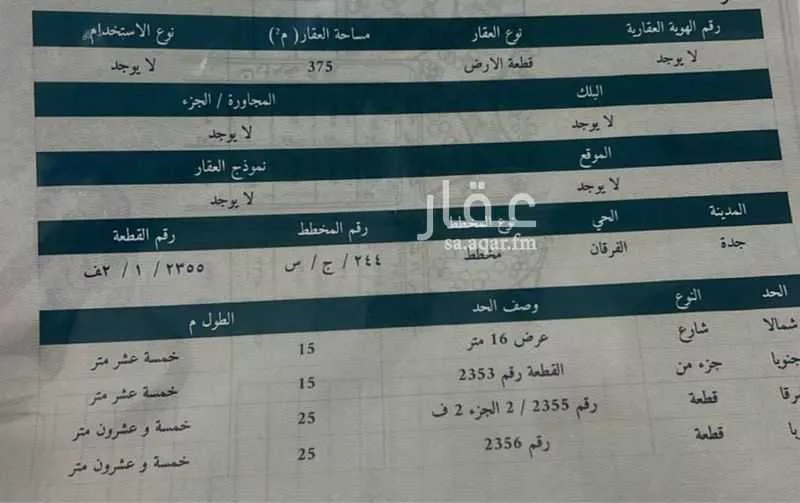 رقم الهوية العقارية نوع العقار مساحة العقار( م²) نوع الاستخدام
لا يوجد قطعة الارض 375 لا يوجد
البلك المجاورة / الجزء
لا يوجد لا يوجد
الموقع نموذج العقار
لا يوجد لا يوجد
المدينة الحي نوع المخطط رقم المخطط رقم القطعة
جدة الفرقان مخطط ٢٤٤ / ج / س ٢٣٥٥ / ١ / ٢ف
عقار
sa.aqar.fm
الحد النوع وصف الحد الطول م
شمالا شارع عرض 16 متر 15 خمسة عشر متر
جنوبا جزء من القطعة رقم 2353 15 خمسة عشر متر
رقا قطعة رقم 2355 / 2 الجزء 2 ف 25 خمسة و عشرون متر
با قطعة رقم 2356 25 خمسة و عشرون متر